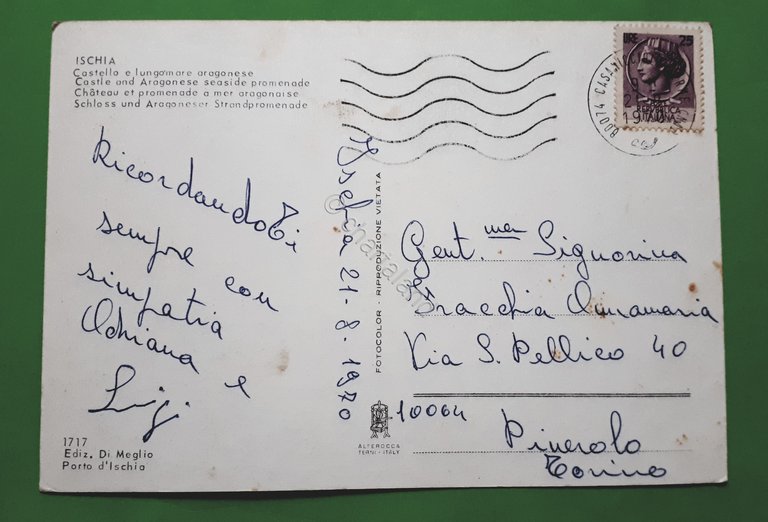 ISCHIA
Castello e lungomare aragonese
Castle and Aragonese seaside promenade
Château et promenade a mer aragonaise
Schloss und Aragoneser Strandpromenade
RicordandoTi
sempre con
simpatia
Adriana e
Luigi
1717
Ediz. Di Meglio
Porto d'Ischia
Ischia 21-8-1970
FOTOCOLOR - RIPRODUZIONE VIETATA
ALTEROCCA
TERNI - ITALY
LIRE 25
REPUBBLICA
ITALIANA
80074 CASAMICCIOLA
Gent.ma Signorina
Annamaria
Via S. Pellico 40
10064
Pinerolo
Torino